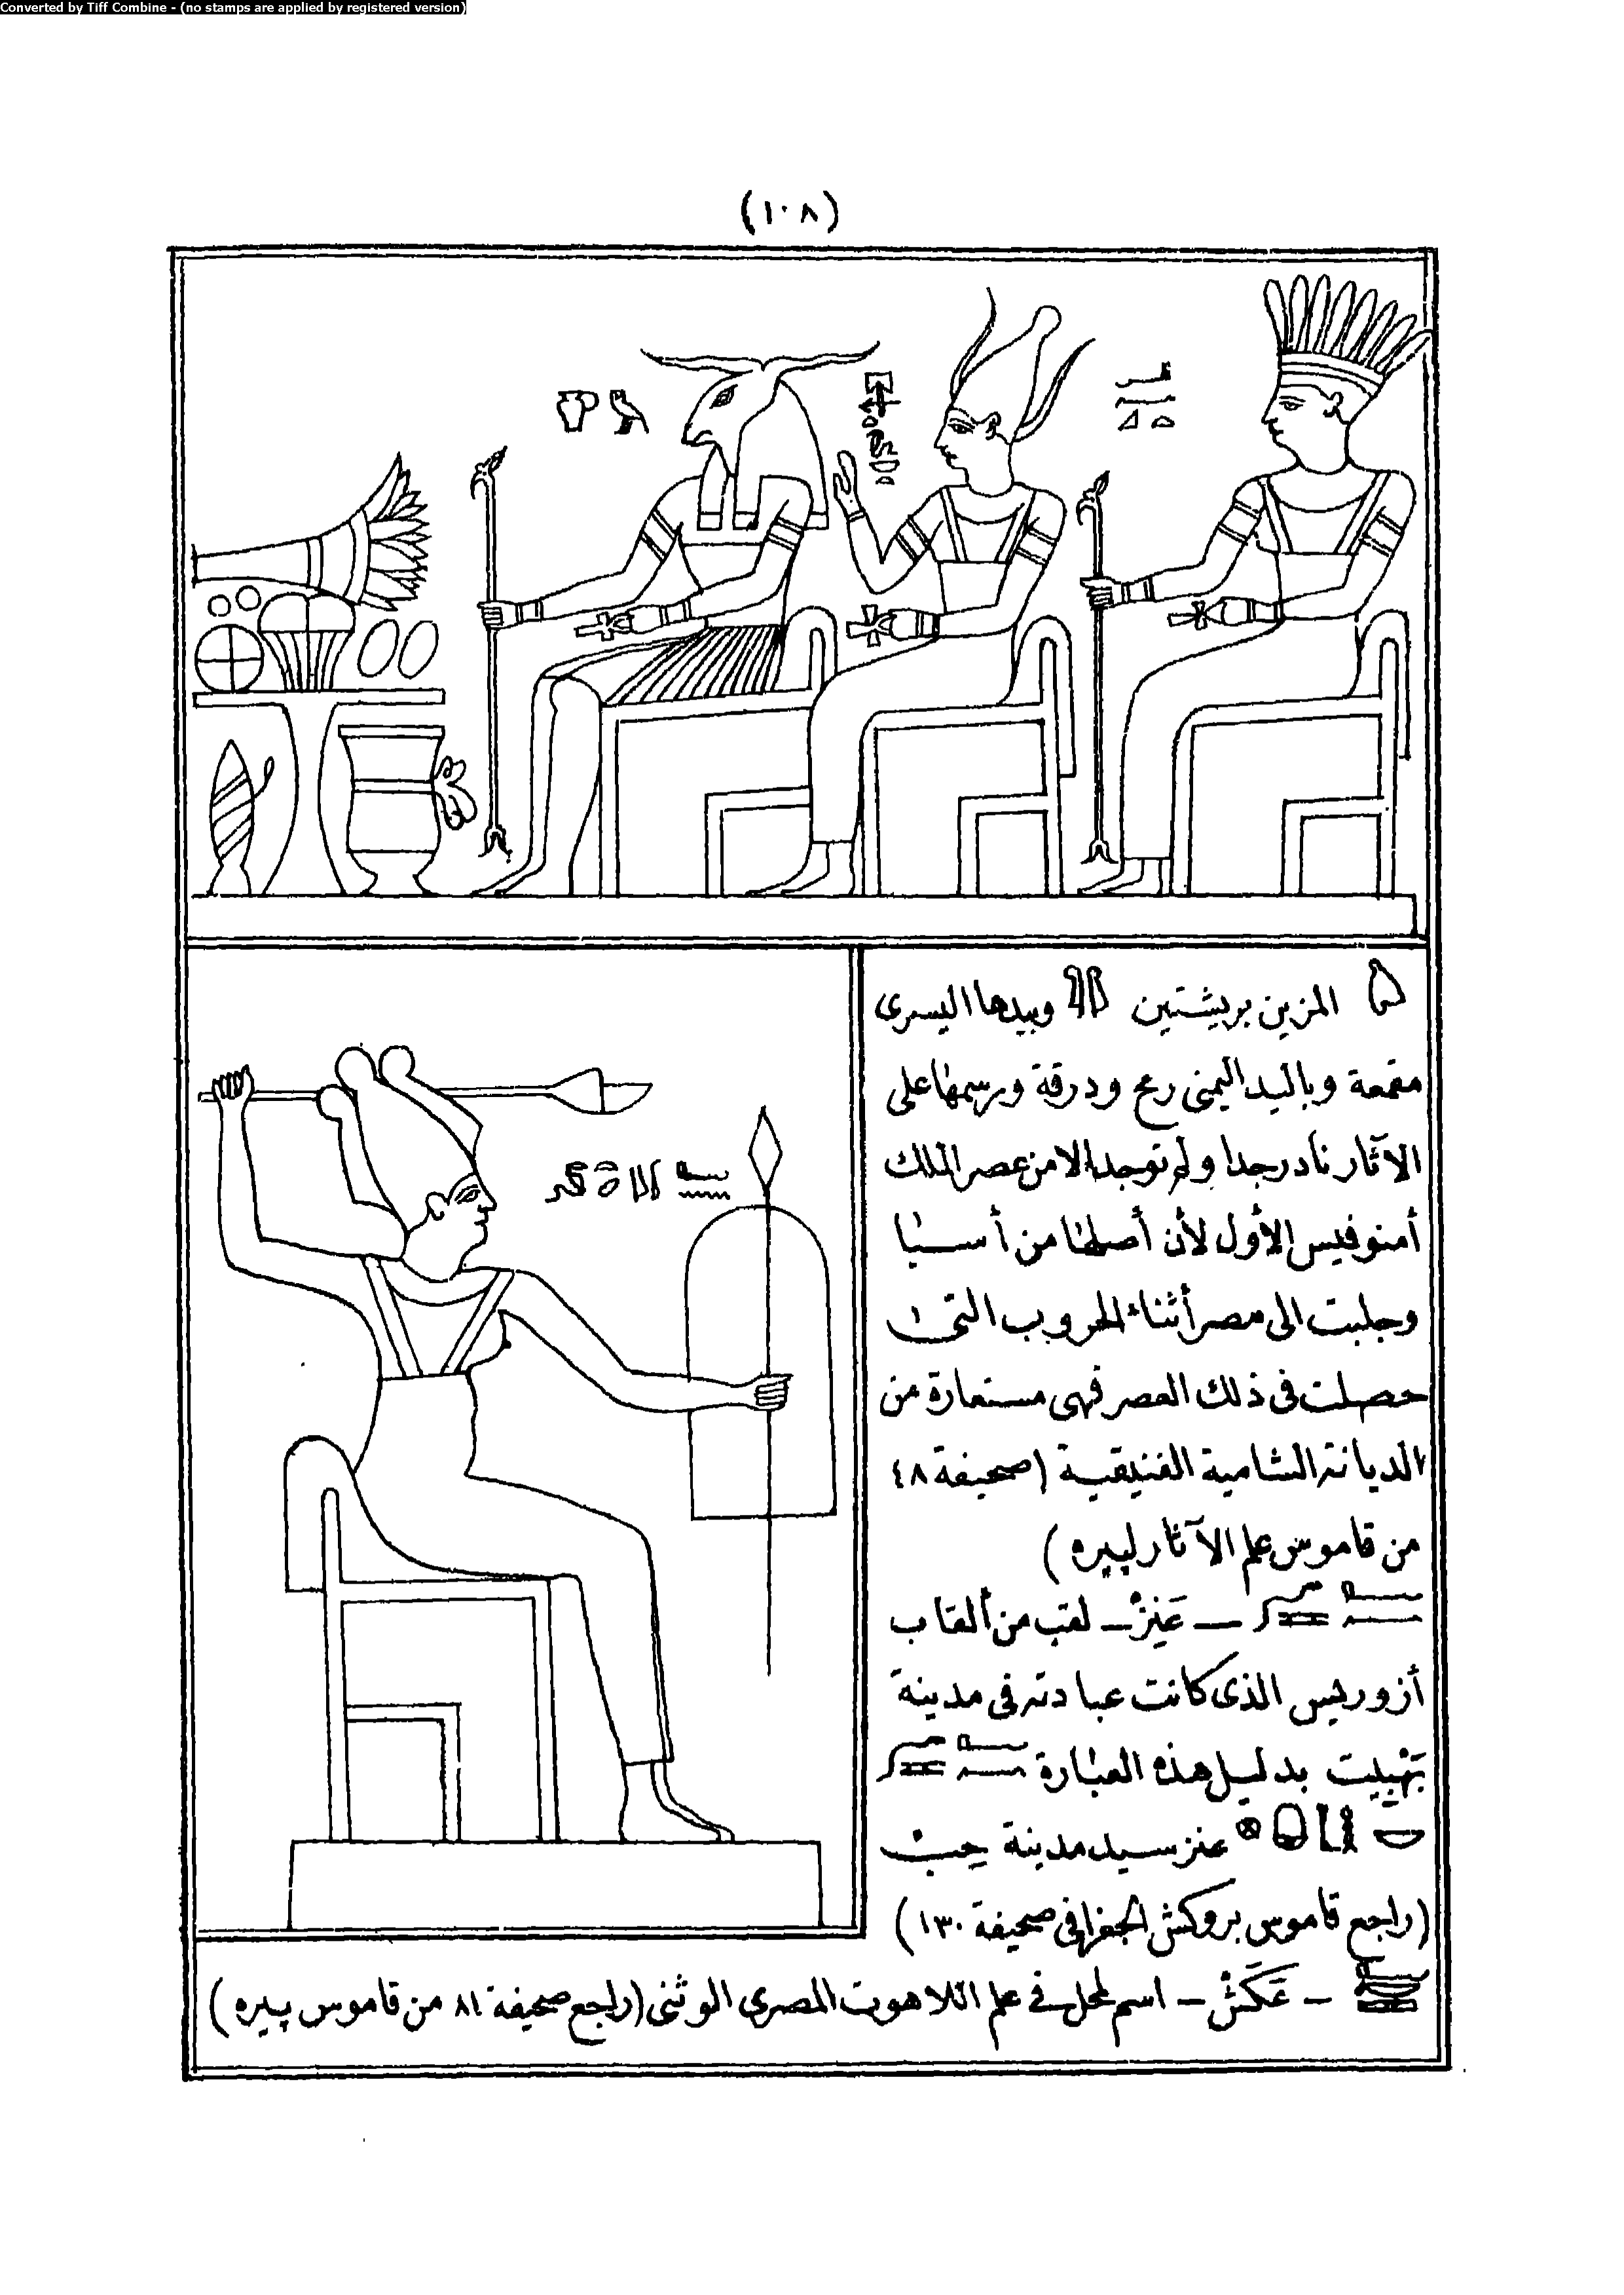 Converted by Tiff Combine - (no stamps are applied by registered version)
(١٠٨)
المزين بريشتين وبيدها اليسرى
مقمعة وباليد اليمنى رمح ودرقة ورسمها على
الآثار نادر جدا ولم توجد الا من عصر الملك
أمنوفيس الأول لأن أصلها من أسيا
وجلبت الى مصر أثناء الحروب التى
حصلت فى ذلك العصر فهى مستعارة من
الديانة الشامية الفنيقية (صحيفة ٤٨
من قاموس علم الآثار لپيره)
— عَنِزْ — لقب من ألقاب
أزوريس الذى كانت عبادته فى مدينة
بَهْبِيت بدليل هذه العبارة
عنز سيد مدينة حِبْ
(راجع قاموس بروكش الجغرافى صحيفة ١٣٠)
— عَكَشْ — اسم لمحل فى علم اللاهوت المصرى الوثنى (راجع صحيفة ٨١ من قاموس پيره)